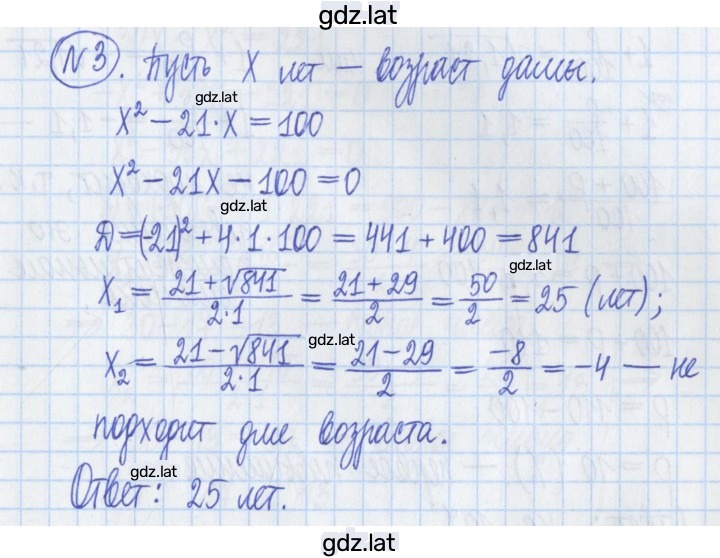 gdz.lat
№3. Пусть x лет – возраст дамы.
gdz.lat
x² – 21·x = 100
x² – 21x – 100 = 0
gdz.lat
Д = (-21)² + 4·1·100 = 441 + 400 = 841
gdz.lat
x₁ = (21 + √841)/(2·1) = (21 + 29)/2 = 50/2 = 25 (лет);
gdz.lat
x₂ = (21 – √841)/(2·1) = (21 – 29)/2 = –8/2 = –4 – не
подходит для возраста.
gdz.lat
Ответ: 25 лет.
gdz.lat